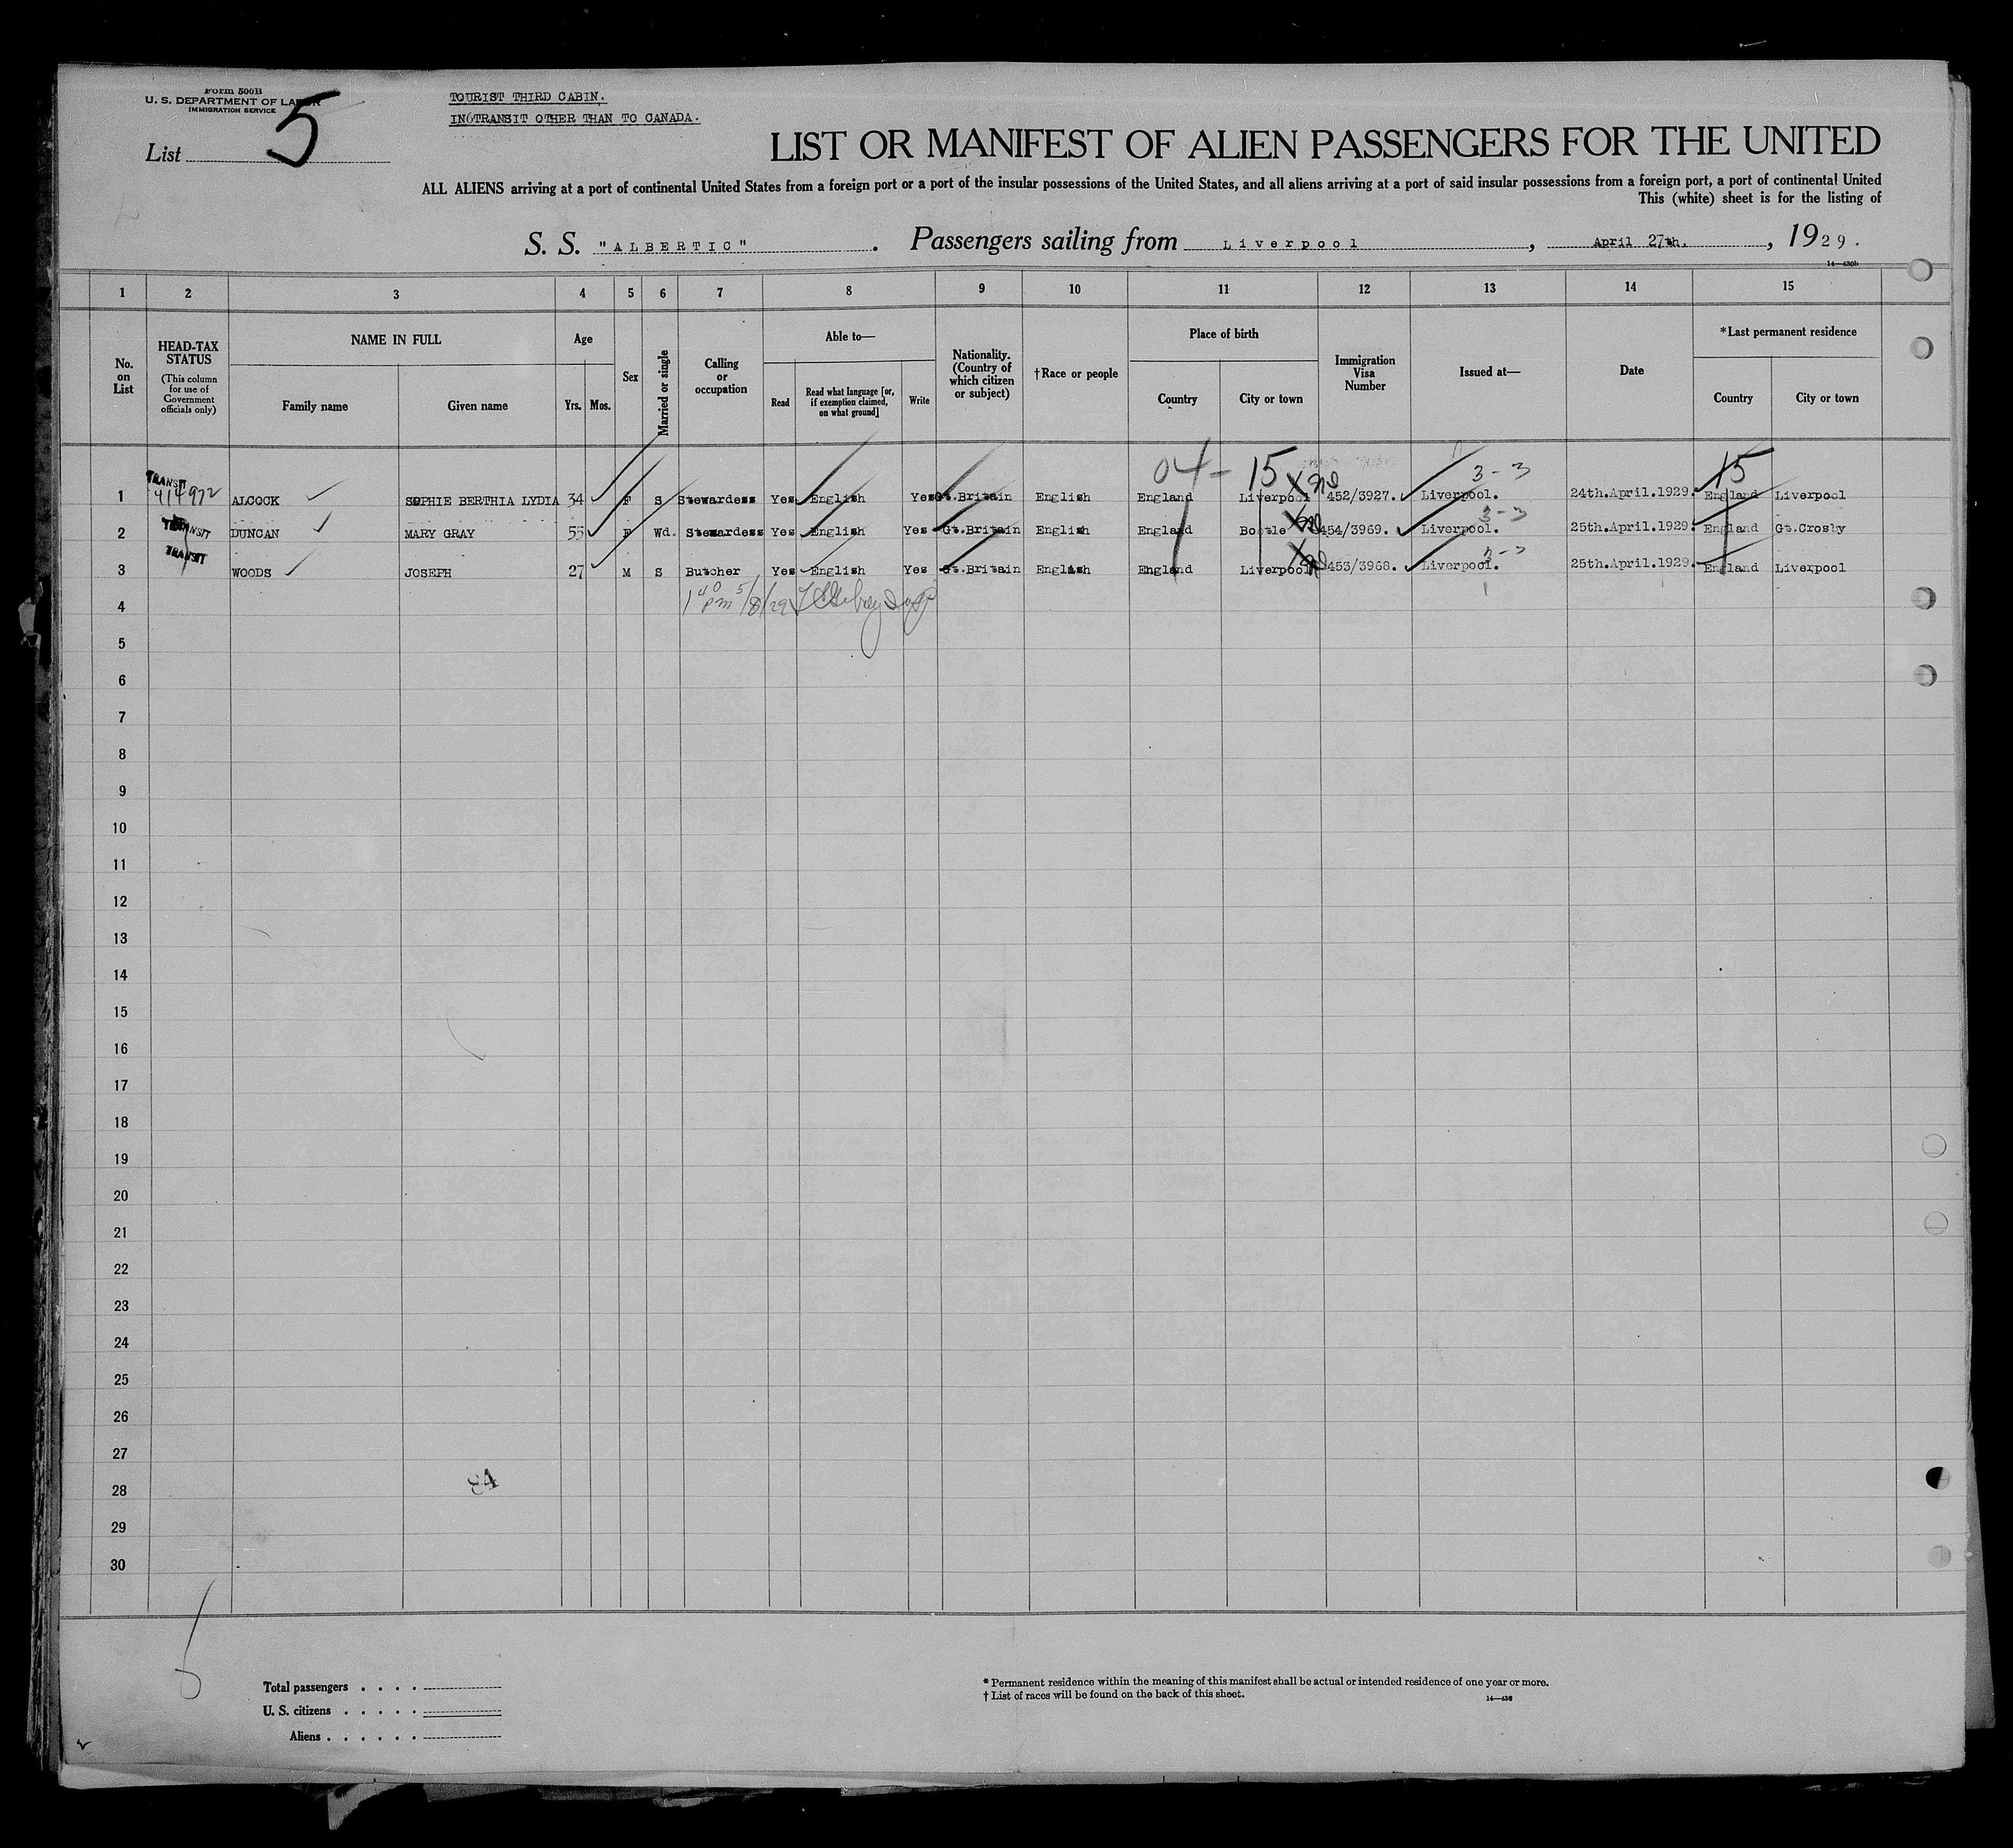 Form 500B
U. S. DEPARTMENT OF LABOR
IMMIGRATION SERVICE
List 5
TOURIST THIRD CABIN.
IN TRANSIT OTHER THAN TO CANADA.
LIST OR MANIFEST OF ALIEN PASSENGERS FOR THE UNITED
ALL ALIENS arriving at a port of continental United States from a foreign port or a port of the insular possessions of the United States, and all aliens arriving at a port of said insular possessions from a foreign port, a port of continental United
This (white) sheet is for the listing of
S. S. "ALBERTIC" . Passengers sailing from Liverpool , April 27th. , 1929.
14—430b
1 2 3 4 5 6 7 8 9 10 11 12 13 14 15
No. on List
HEAD-TAX STATUS
(This column for use of Government officials only)
NAME IN FULL
Family name Given name
Age
Yrs. Mos.
Sex
Married or single
Calling or occupation
Able to—
Read Read what language [or, if exemption claimed, on what ground] Write
Nationality. (Country of which citizen or subject)
†Race or people
Place of birth
Country City or town
Immigration Visa Number
Issued at—
Date
*Last permanent residence
Country City or town
04 - 15 3-3 15
1 TRANSIT 414972 ALCOCK SOPHIE BERTHIA LYDIA 34 F S Stewardess Yes English Yes Gt.Britain English England Liverpool 452/3927. Liverpool. 24th.April.1929. England Liverpool
3-3
2 TRANSIT DUNCAN MARY GRAY 55 F Wd. Stewardess Yes English Yes Gt.Britain English England Bootle 454/3969. Liverpool. 25th.April.1929. England Gt.Crosby
3 TRANSIT WOODS JOSEPH 27 M S Butcher Yes English Yes Gt.Britain English England Liverpool 453/3968. Liverpool. 25th.April.1929. England Liverpool
1 40 pm 5/8/29
4
5
6
7
8
9
10
11
12
13
14
15
16
17
18
19
20
21
22
23
24
25
26
27
28
29
30
Total passengers . . . .
U. S. citizens . . . . .
Aliens . . . . . .
* Permanent residence within the meaning of this manifest shall be actual or intended residence of one year or more.
† List of races will be found on the back of this sheet.
14—430